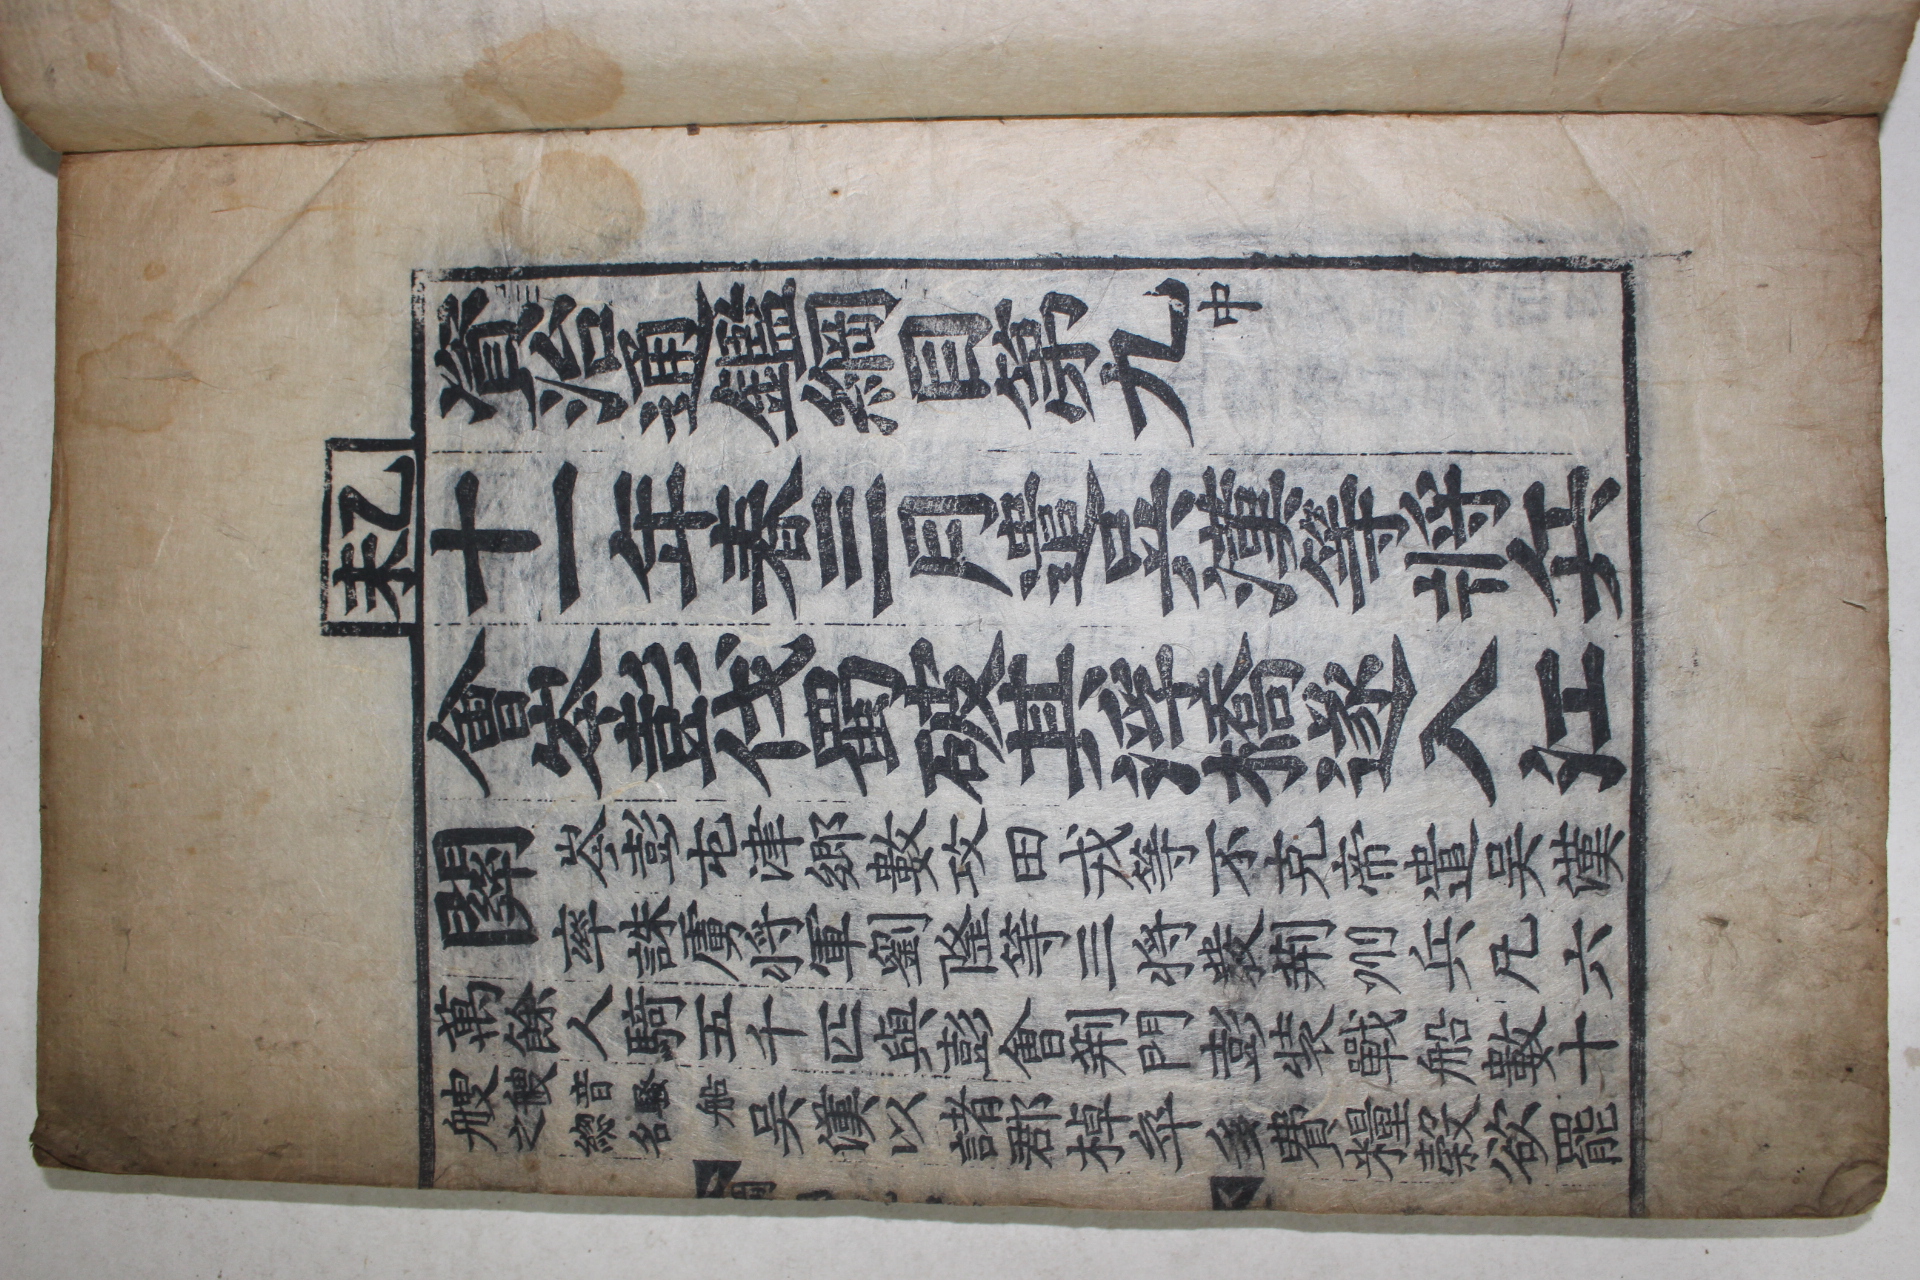 資治通鑑綱目第九中
乙未
十一年春三月遣吳漢等將兵
會岑彭伐蜀破其浮橋遂入江
關
岑彭屯津鄉數攻田戎等不克帝遣吳漢
率誅虜將軍劉隆等三將發荊州兵凡六
萬餘人騎五千匹與彭會荊門彭裝戰船數十
艘艘音騷船之總名吳漢以諸郡棹卒多費糧穀欲罷